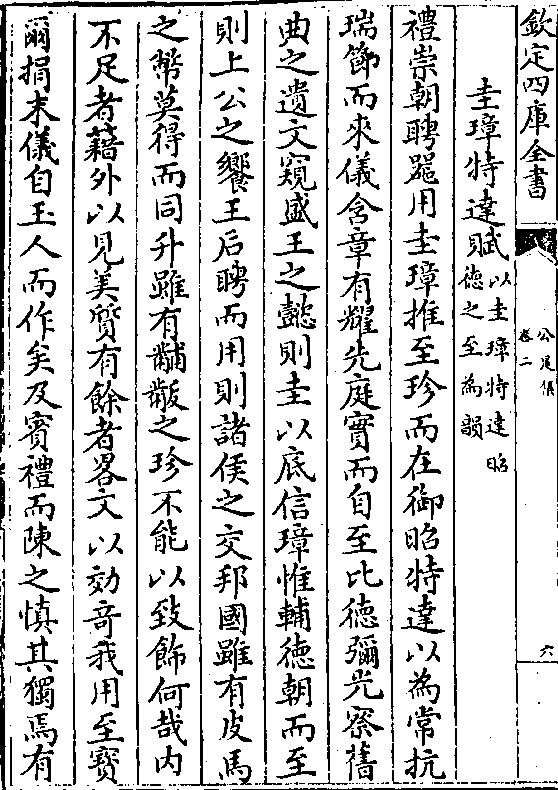 欽定四庫全書
公是集
卷二
六
圭璋特達賦以圭璋特達昭
徳之至為韻
禮崇朝聘噐用圭璋推至珍而在御昭特達以為常抗
瑞節而來儀含章有耀先庭實而自至比徳彌光察舊
典之遺文窺盛王之懿則圭以底信璋惟輔徳朝而至
則上公之饗王后聘而用則諸侯之交邦國雖有皮馬
之幣莫得而同升雖有黼黻之珍不能以致飾何哉内
不足者藉外以見美質有餘者畧文以効竒我用至寳
爾捐末儀自玉人而作矣及賓禮而陳之慎其獨焉有